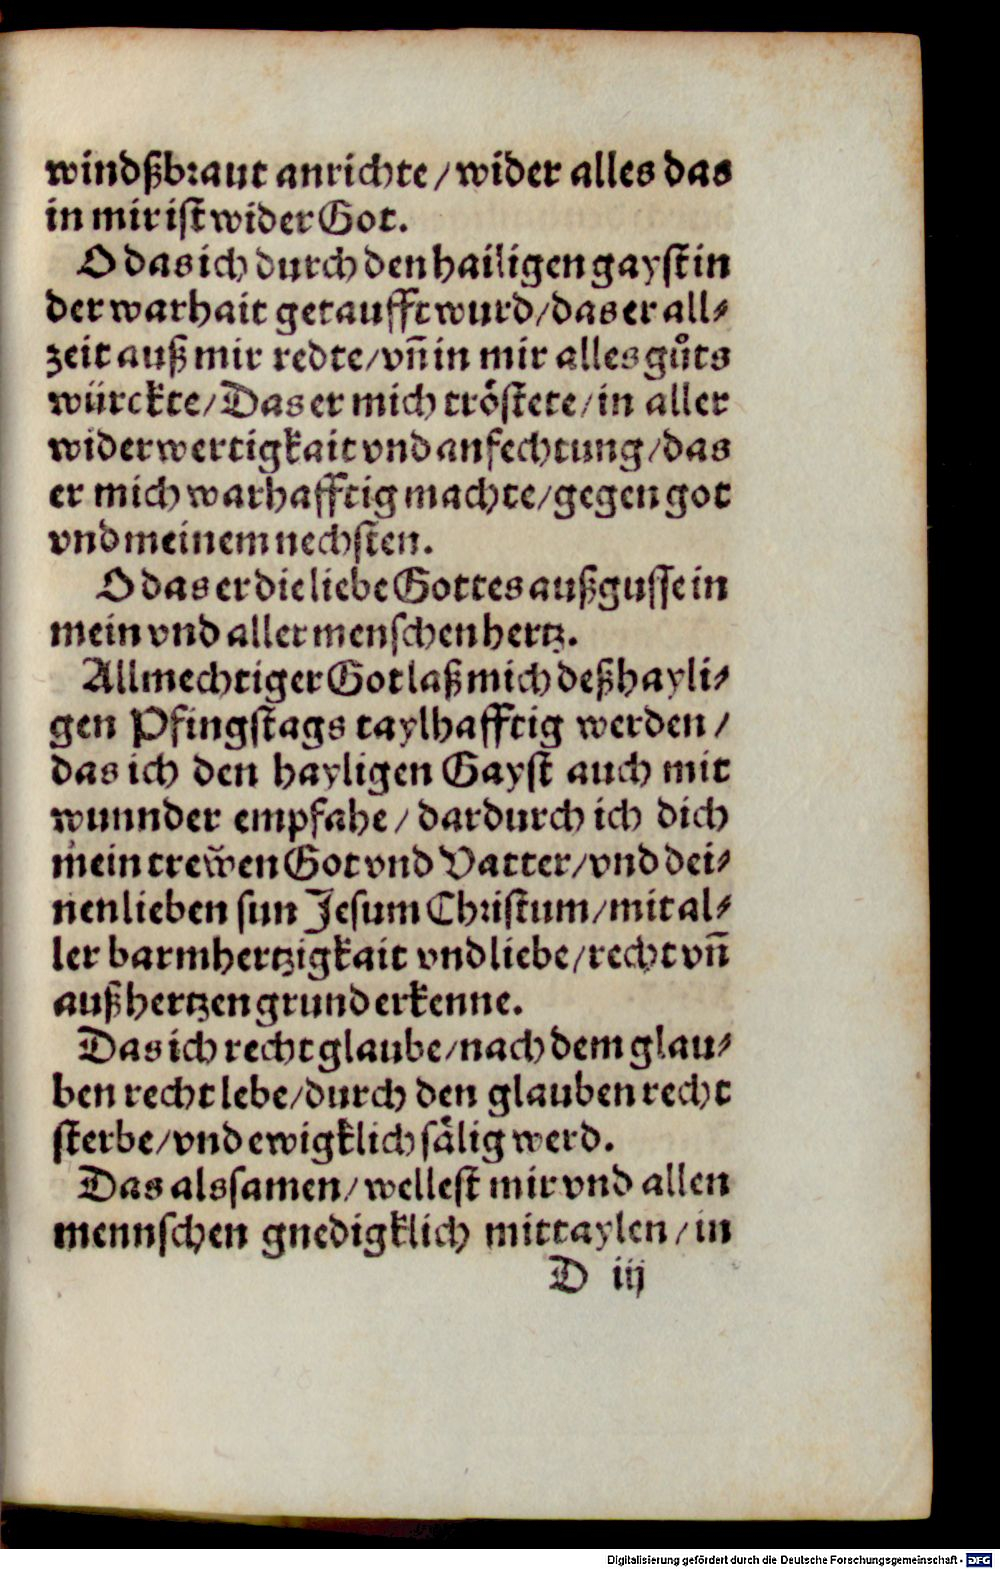 windßbraut anrichte / wider alles das
in mir ist wider Got.
O das ich durch den hailigen gayst in
der warhait getaufft wurd / das er all⸗
zeit auß mir redte / vn̄ in mir alles gůts
würckte / Das er mich tröstete / in aller
widerwertigkait vnd anfechtung / das
er mich warhafftig machte / gegen got
vnd meinem nechsten.
O das er die liebe Gottes außgusse in
mein vnd aller menschen hertz.
Allmechtiger Got laß mich deß hayli⸗
gen Pfingstags taylhafftig werden /
das ich den hayligen Gayst auch mit
wunnder empfahe / dardurch ich dich
mein trew̃en Got vnd Vatter / vnd dei⸗
nen lieben sun Jesum Christum / mit al⸗
ler barmhertzigkait vnd liebe / recht vn̄
auß hertzen grund erkenne.
Das ich recht glaube / nach dem glau⸗
ben recht lebe / durch den glauben recht
sterbe / vnd ewigklich sälig werd.
Das als samen / wellest mir vnd allen
mennschen gnedigklich mittaylen / in
D iij
Digitalisierung gefördert durch die Deutsche Forschungsgemeinschaft - DFG